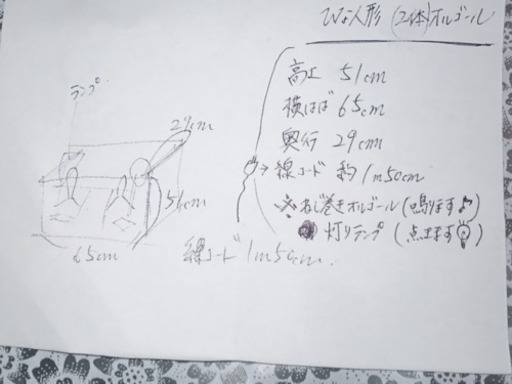 ひな人形 (2体) オルゴール
高さ 51cm
横はば 65cm
奥行 29cm
線コード 約1m50cm
ねじ巻きオルゴール (鳴ります♪)
灯りランプ (点きます)
ランプ
29cm
51cm
65cm
線コード 1m50cm.